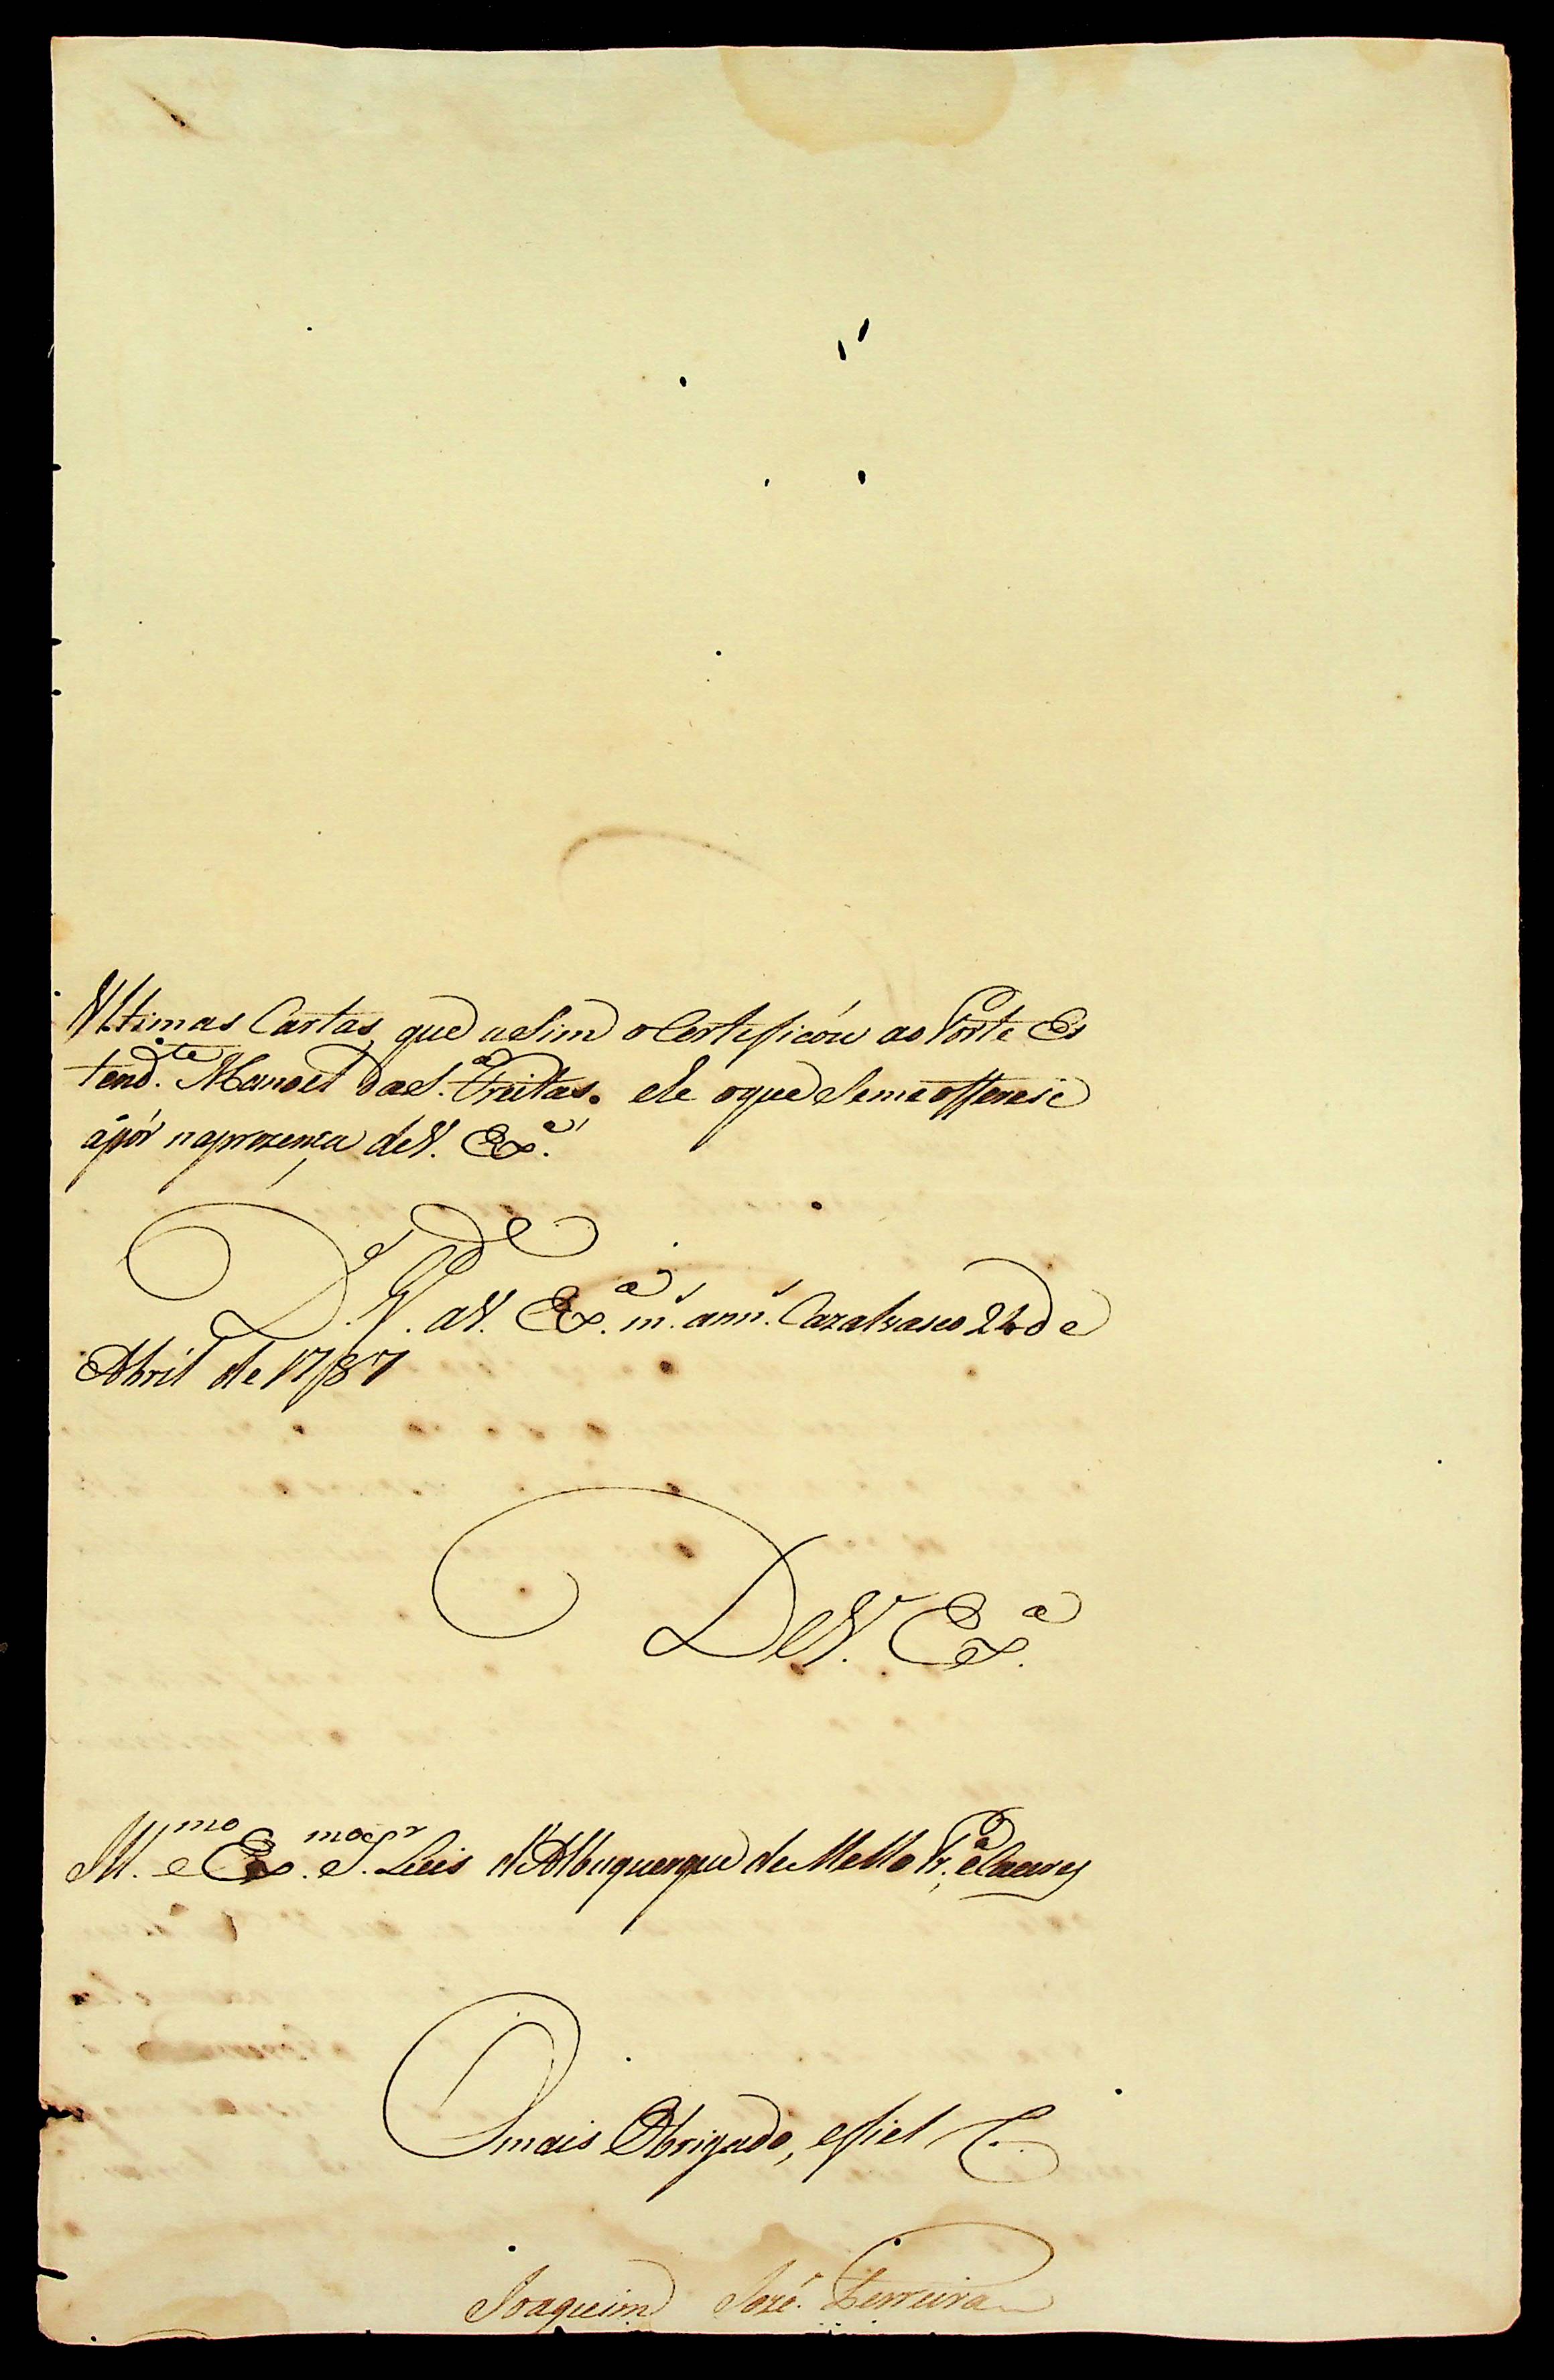 Vltimas Cartas, que asim o Certeficou ao Porte Es
tend.te Manoel da S.a Freitas. ele o que se me offerese
apôr na prezença de V. Ex.a
D.s G.de a V. Ex.a m.s ann.s Cazalvasco 24 de
Abril de 1787
De V. Ex.a
Ill.mo e Ex.mo S.r Luis d'Albuquerque de Mello Pr.a e Caceres
O mais Obrigado, e fiel C.
Joaquim José Ferreira